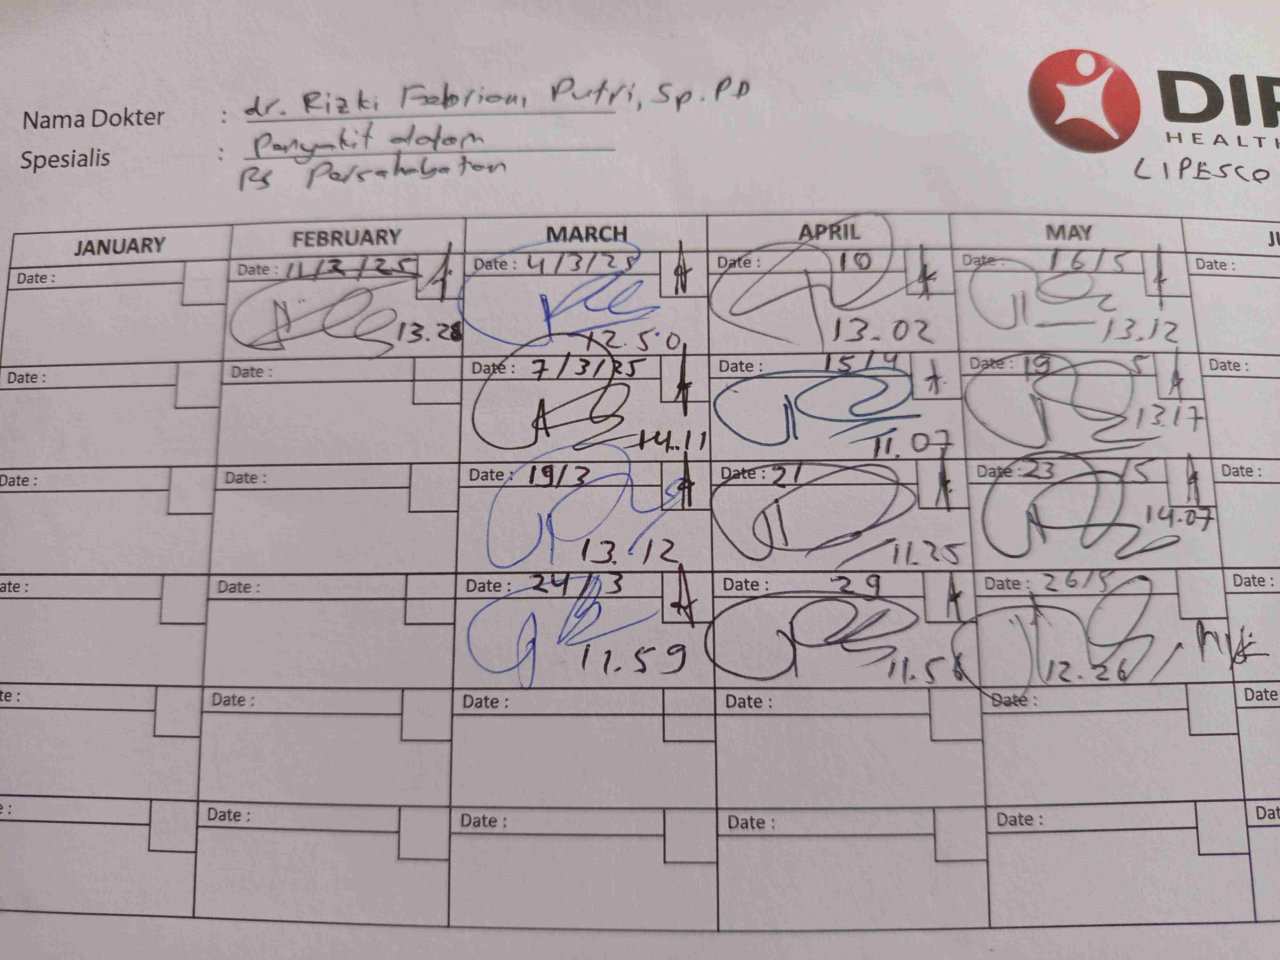 Nama Dokter : dr. Rizki Febriani Putri, Sp.PD
Spesialis : Penyakit dalam
RS Persahabatan
DIP
HEALTH
LIPESCO
JANUARY FEBRUARY MARCH APRIL MAY JU
Date : Date : 11/2/25 Date : 4/3/25 Date : 10 Date : 16/5 Date :
13.28 12.50 13.02 13.12
Date : Date : Date : 7/3/25 Date : 15/4 Date : 19 5 Date :
14.11 11.07 13.17
Date : Date : Date : 19/3 Date : 21 Date : 23/5 Date :
13.12 11.25 14.07
ate : Date : Date : 24/3 Date : 29 Date : 26/5 Date :
11.59 11.56 12.26
te : Date : Date : Date : Date : Date
e : Date : Date : Date : Date : Dat